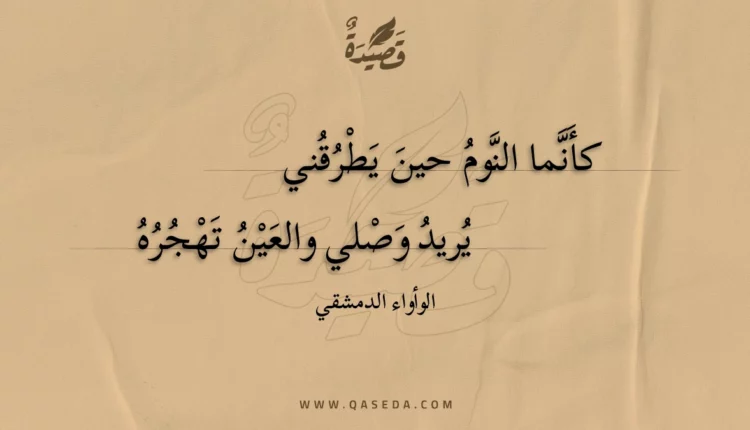 قَصِيْدَةٌ
كأَنَّما النَّومُ حينَ يَطْرُقُني
يُريدُ وَصْلي والعَيْنُ تَهْجُرُهُ
الوأواء الدمشقي
WWW.QASEDA.COM